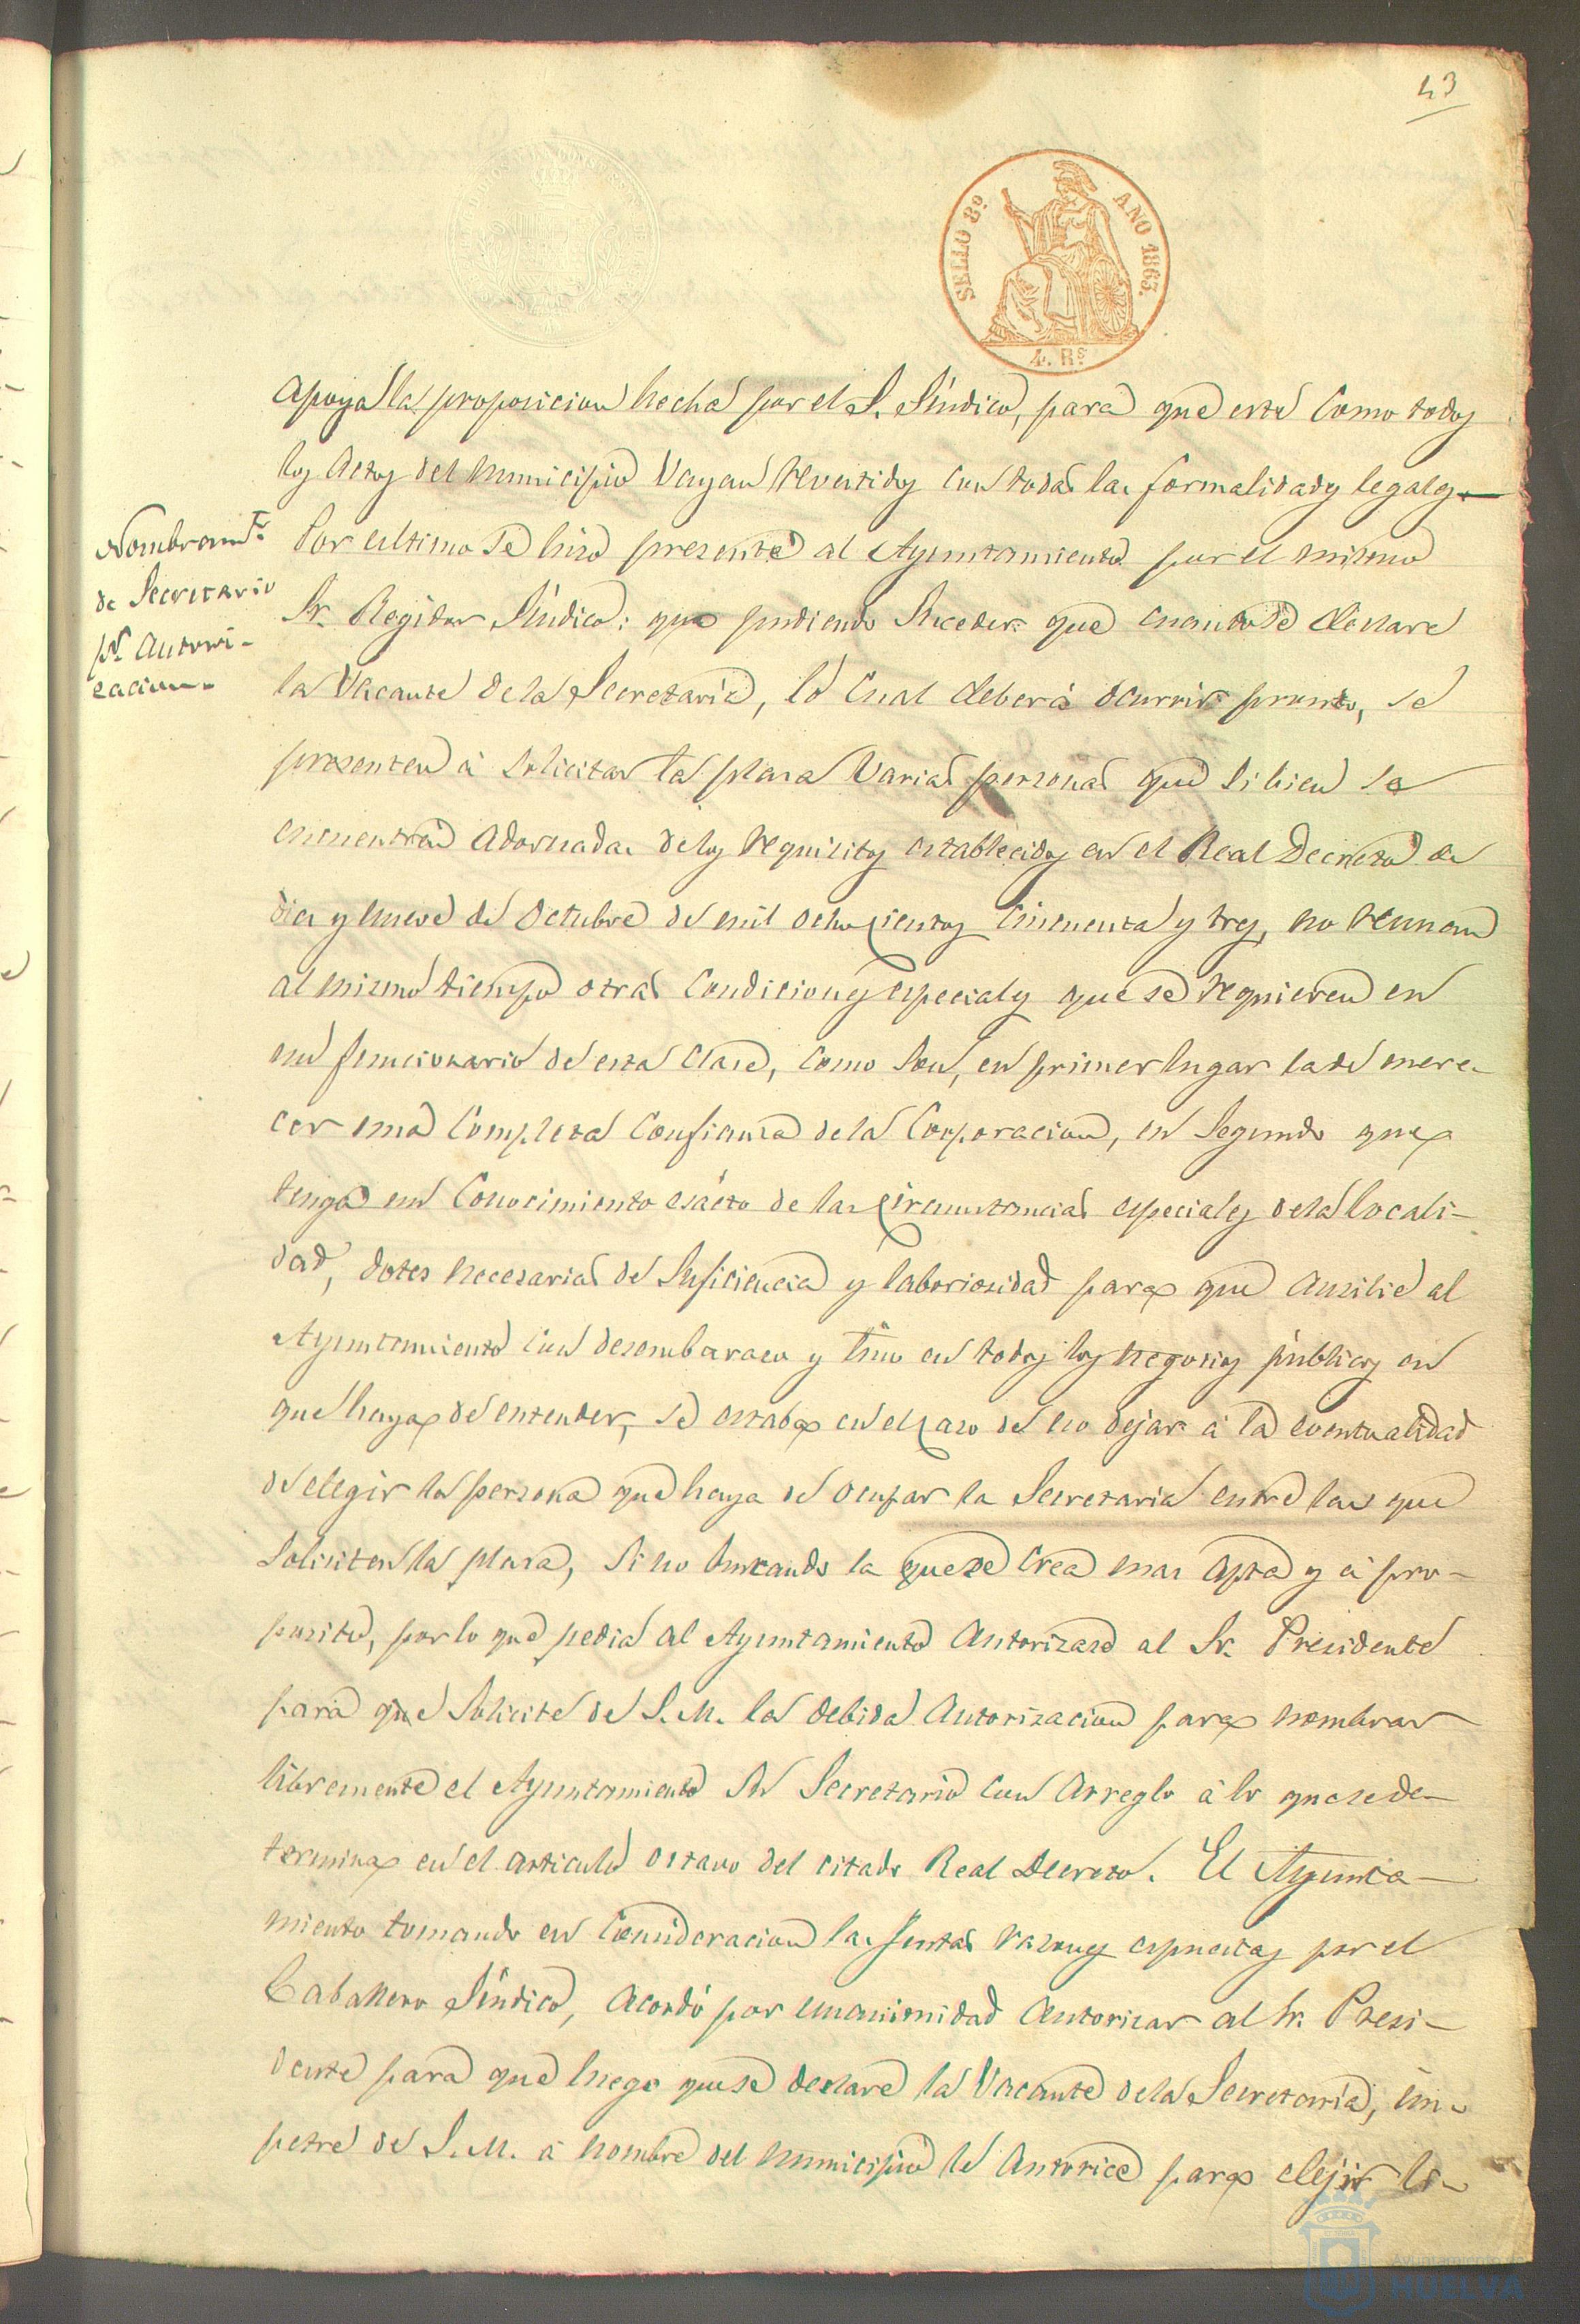 43
SELLO 8º AÑO 1863.
4. Rs
apoya la proposicion hecha por el S. Síndico, para que este como todos
los actos del Municipio vayan revestidos con todas las formalidades legales
Nombramto
de Secretario
pr autori-
zacion.
Por ultimo se hizo presente al Ayuntamiento por el mismo
Sr. Regidor Síndico: que pudiendo suceder que cuando se declare
la vacante de la Secretaria, lo cual deberá ocurrir pronto, se
presenten á solicitar la plaza varias personas que si bien se
encuentran adornadas de los requisitos establecidos en el Real Decreto de
diez y nueve de Octubre de mil ochocientos cincuenta y tres, no reunan
al mismo tiempo otras condiciones especiales que se requieren en
un funcionario de esta clase, como son, en primer lugar la de mere-
cer una completa confianza de la Corporacion, en segundo que
tenga un conocimiento esácto de las circunstancias especiales de la locali-
dad, dotes necesarias de suficiencia y laboriosidad para que ausilie al
Ayuntamiento con desembarazo y tino en todos los negocios públicos en
que haya de entender, se estaba en el caso de no dejar á la eventualidad
de elegir la persona que haya de ocupar la Secretaria entre las que
soliciten la plaza, sino buscando la que se crea mas apta y á pro-
posito, por lo que pedia al Ayuntamiento autorizase al Sr. Presidente
para que solicite de S. M. la debida autorizacion para nombrar
libremente el Ayuntamiento su Secretario con arreglo á lo que se de-
termina en el articulo octavo del citado Real Decreto. El Ayunta-
miento tomando en consideracion las justas razones espuestas por el
Caballero Síndico, acordó por unanimidad autorizar al Sr. Presi-
dente para que luego que se declare la vacante de la Secretaría, im-
petre de S. M. á nombre del Municipio le autorice para elejir lo-
HUELVA